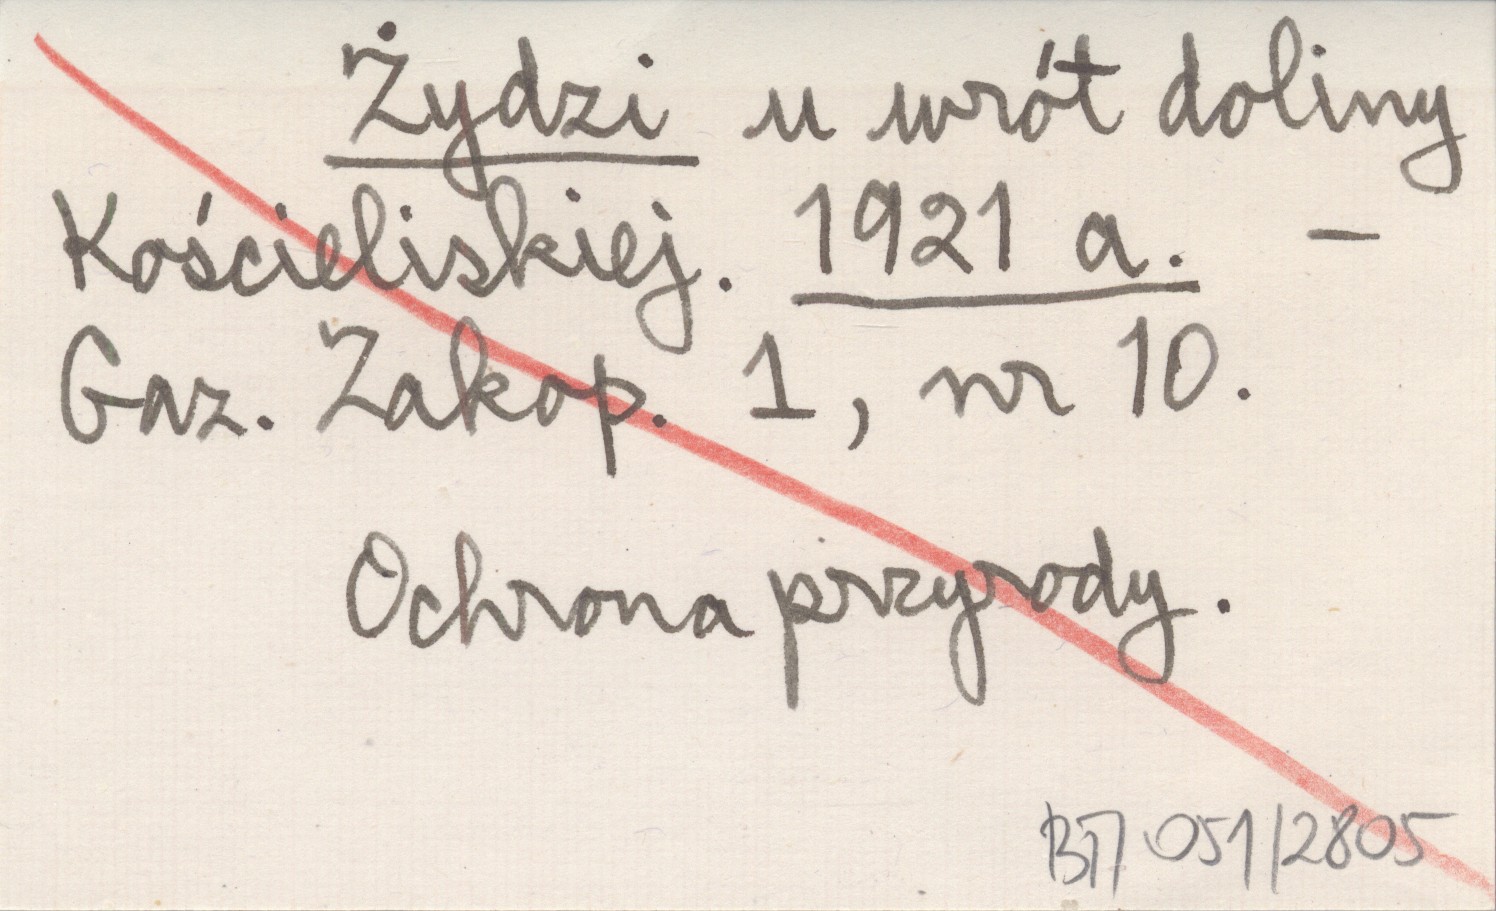 Żydzi u wrót doliny
Kościeliskiej. 1921 a. –
Gaz. Zakop. 1, nr 10.
Ochrona przyrody.
051/2805